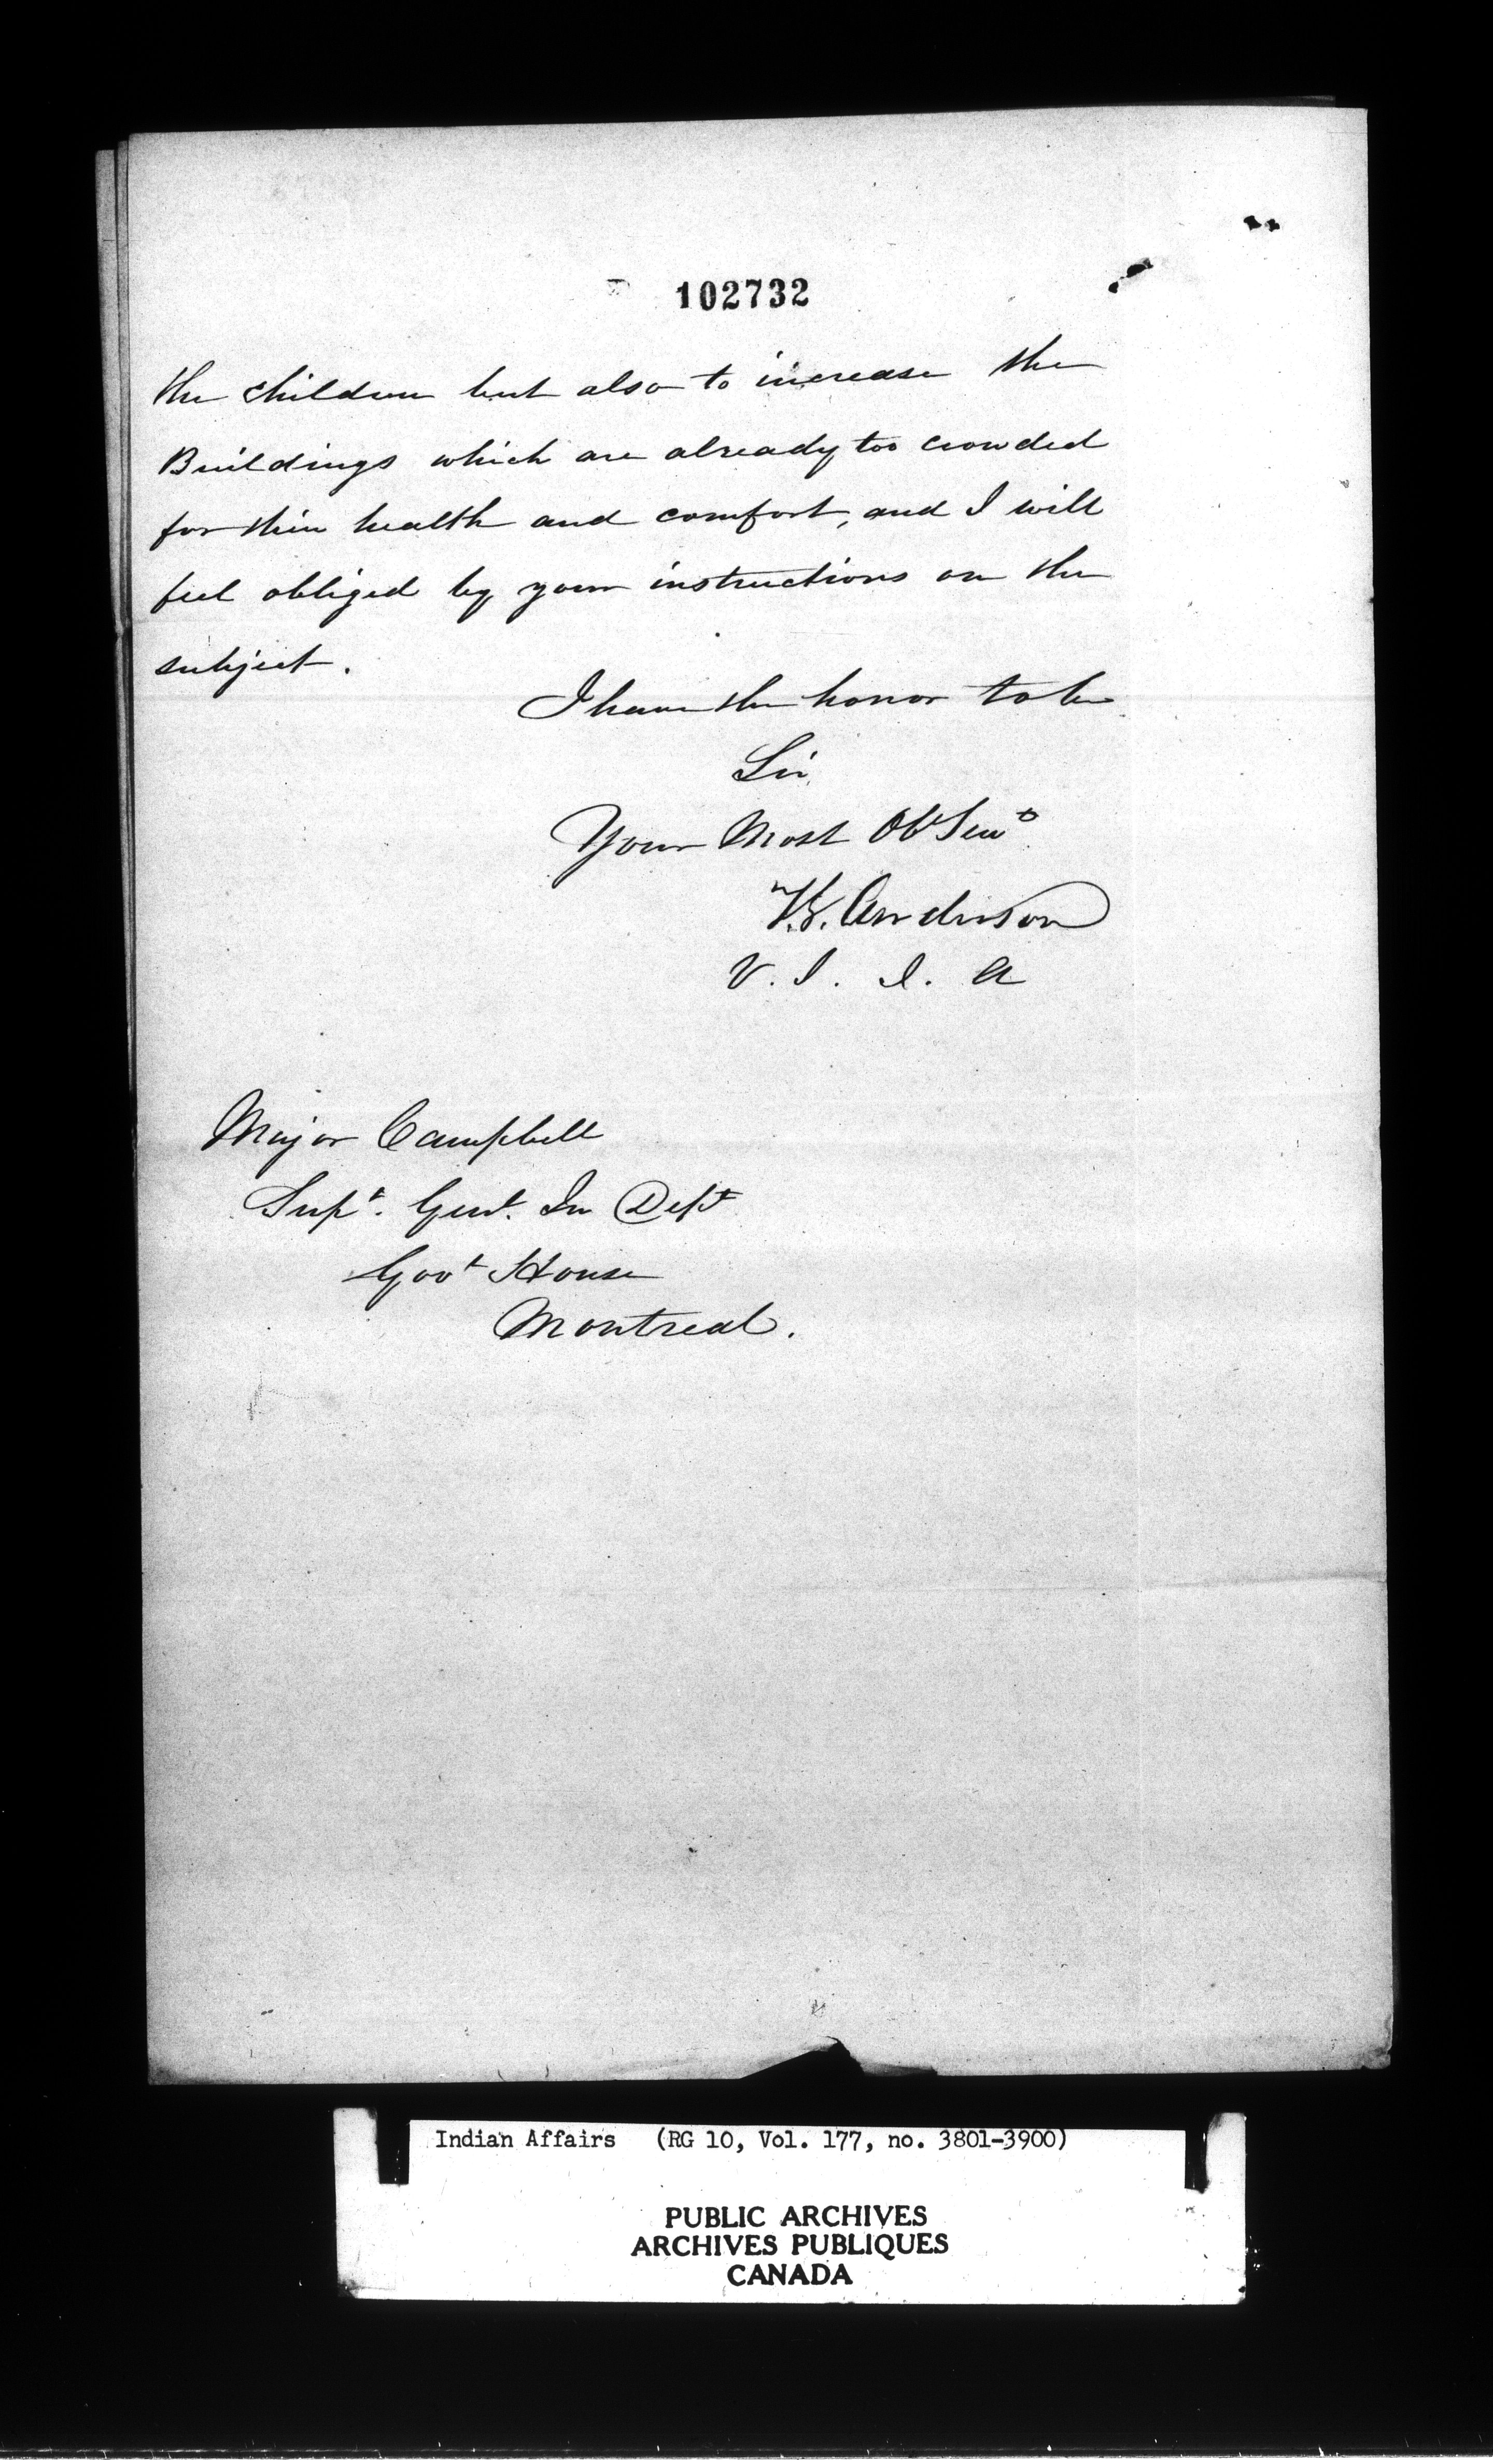 102732
the children but also to increase the
Buildings which are already too crowded
for their health and comfort, and I will
feel obliged by your instructions on the
subject.
I have the honor to be
Sir
Your Most Obt Servt
T.G. Anderson
V. S. I. A
Major Campbell
Supt. Genl. In Dept
Govt House
Montreal.
Indian Affairs (RG 10, Vol. 177, no. 3801-3900)
PUBLIC ARCHIVES
ARCHIVES PUBLIQUES
CANADA